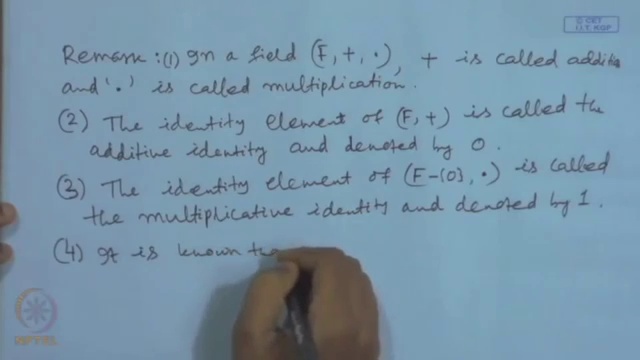 © CET
I.I.T. KGP
Remark : (1) In a field (F, +, ·), + is called additio
and '·' is called multiplication.
(2) The identity element of (F, +) is called the
additive identity and denoted by 0.
(3) The identity element of (F-{0}, ·) is called
the multiplicative identity and denoted by 1.
(4) It is known
NPTEL